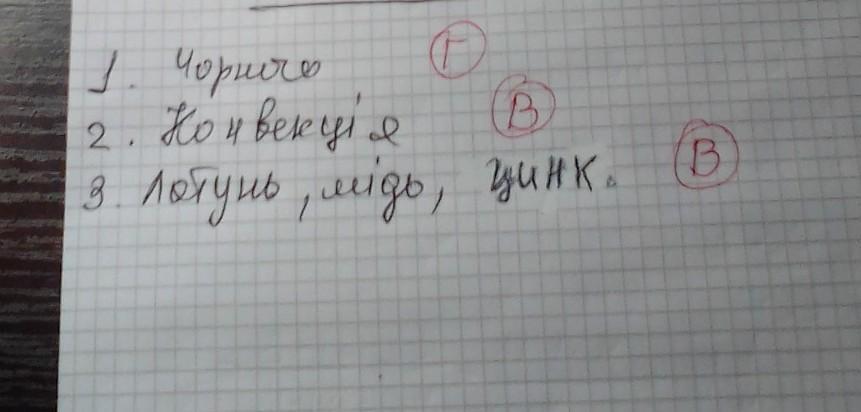 1. Чорного Г
2. Конвекція В
3. Латунь, мідь, цинк. В